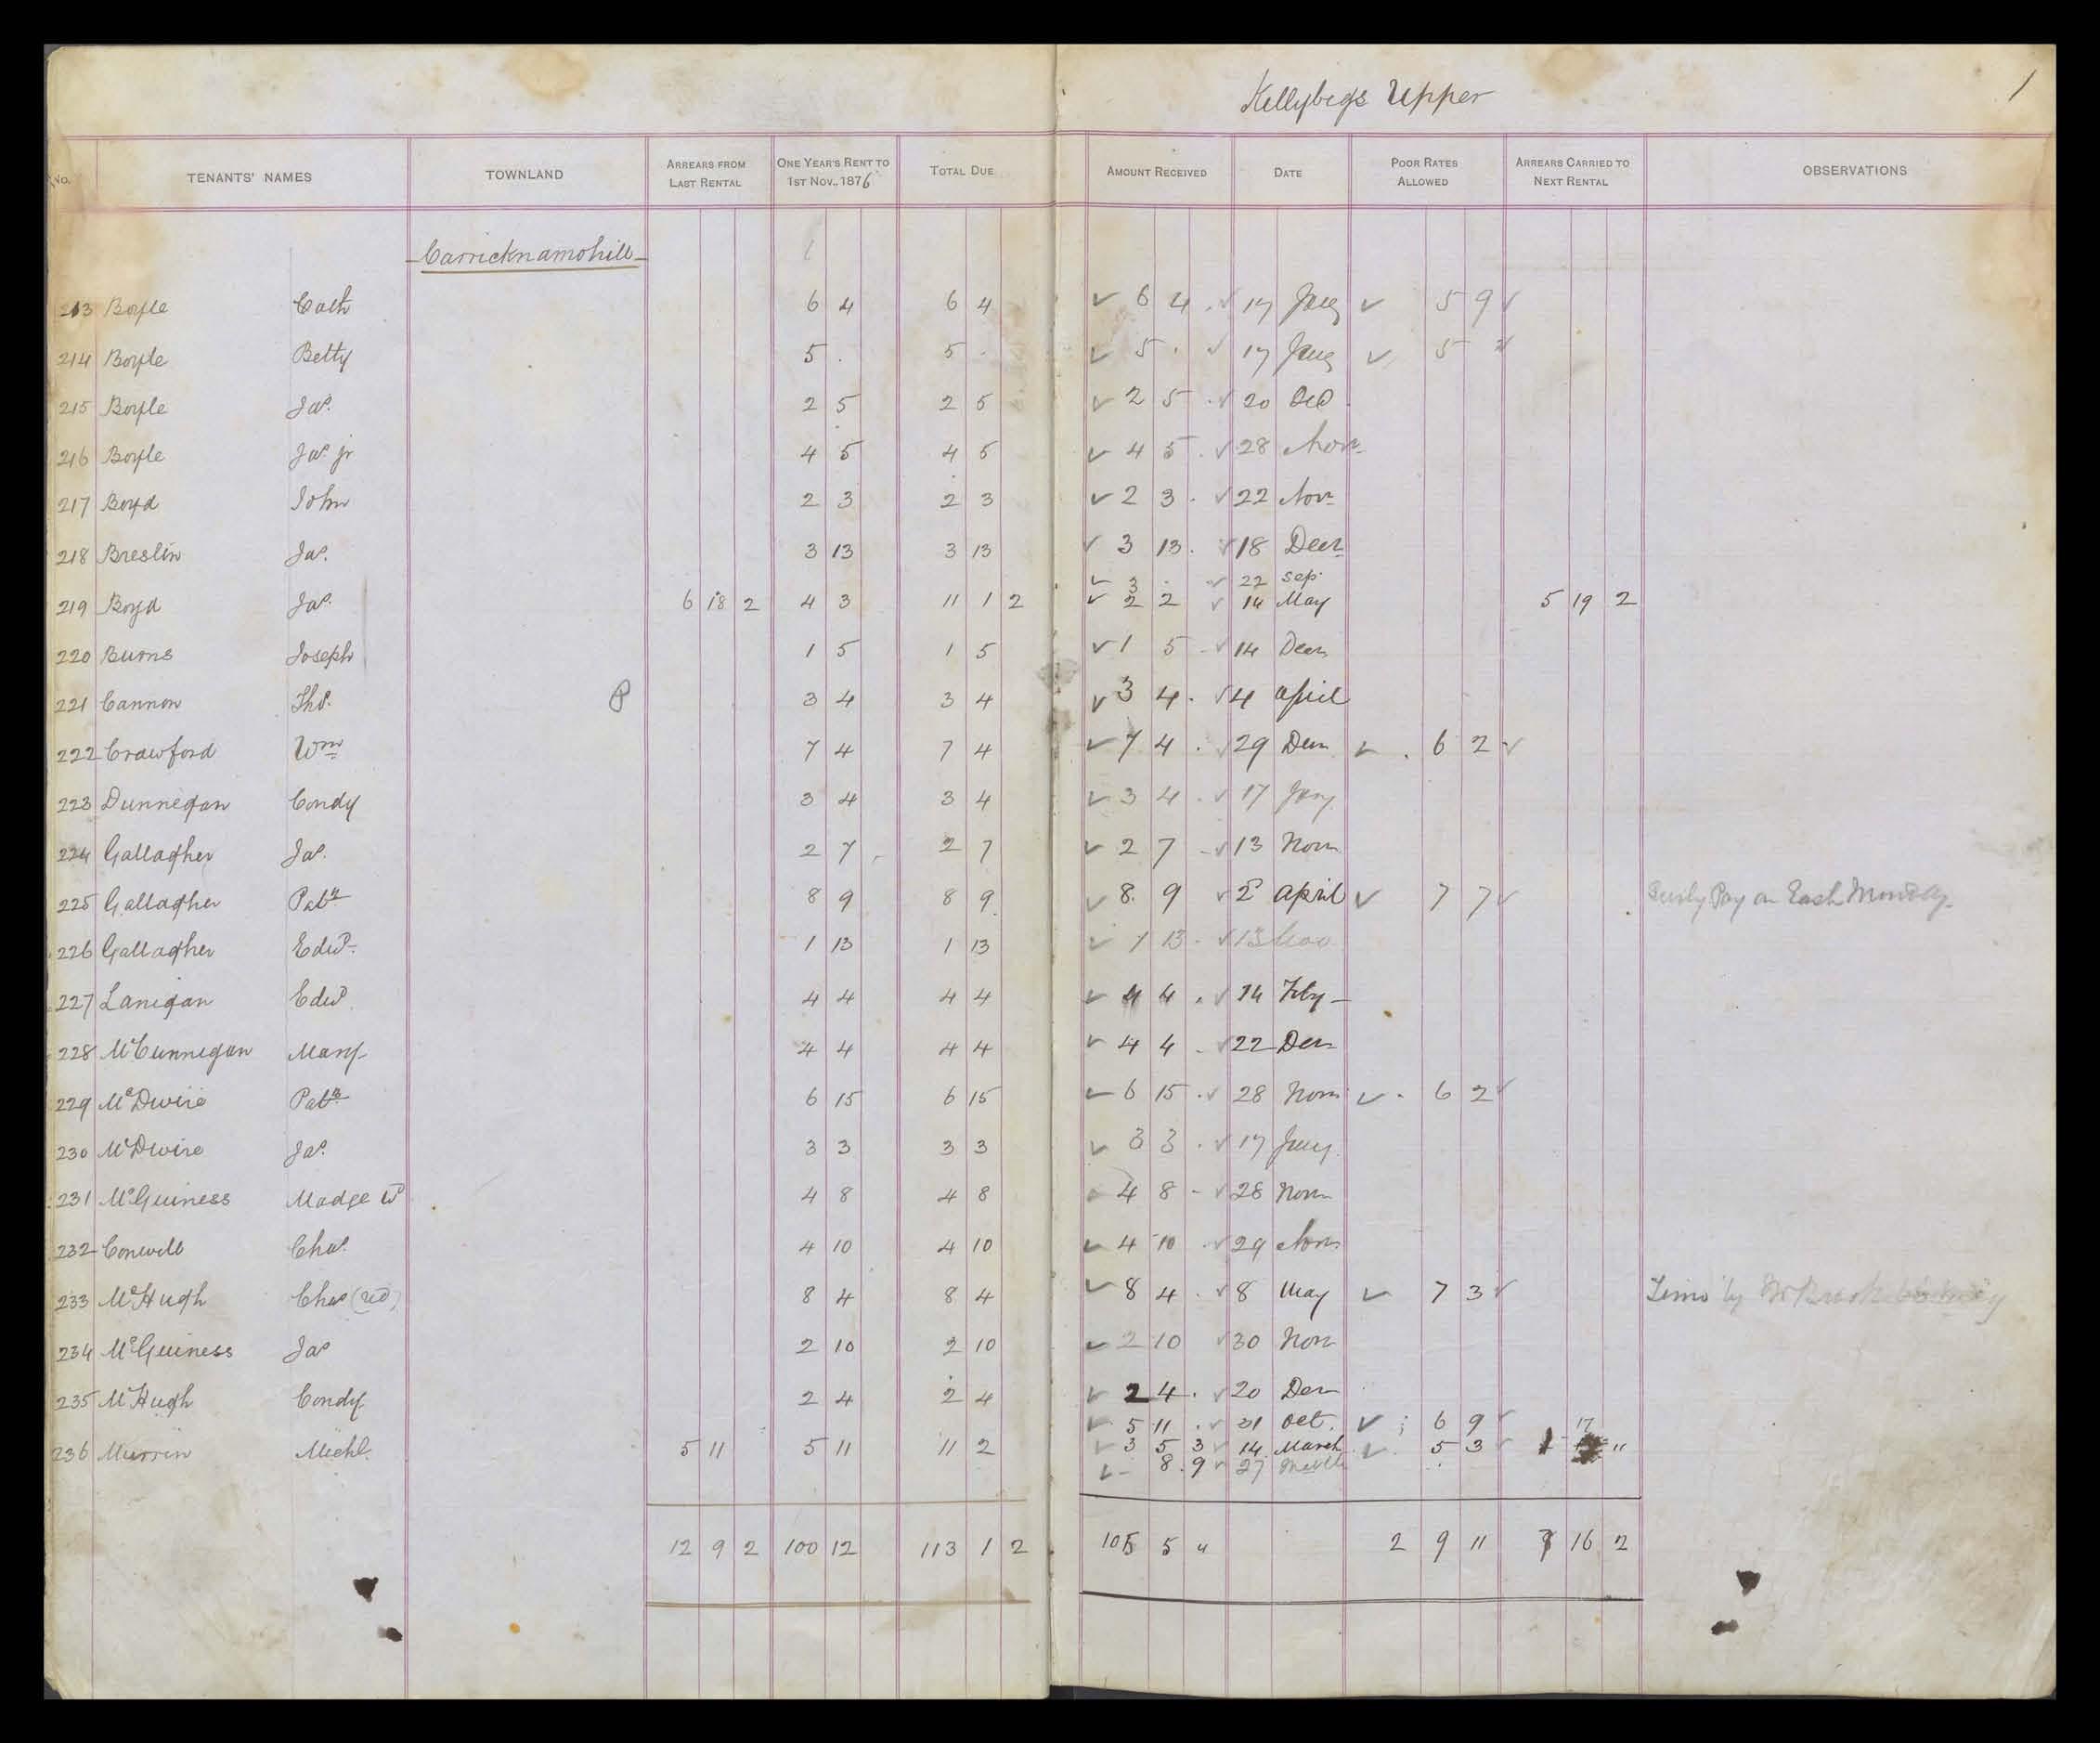 Kellybegs Upper
1
No. TENANTS' NAMES TOWNLAND ARREARS FROM LAST RENTAL ONE YEAR'S RENT TO 1ST NOV., 1876 TOTAL DUE AMOUNT RECEIVED DATE POOR RATES ALLOWED ARREARS CARRIED TO NEXT RENTAL OBSERVATIONS
Carricknamohill
213 Boyle Cath 6 4 6 4 ✓ 6 4 . ✓ 17 Jany ✓ 5 9 ✓
214 Boyle Betty 5 . 5 . ✓ 5 . ✓ 17 Jany ✓ 5 ✓
215 Boyle Jas. 2 5 2 5 ✓ 2 5 . ✓ 20 Dec
216 Boyle Jas jr 4 5 4 5 ✓ 4 5 . ✓ 28 Novr
217 Boyd John 2 3 2 3 ✓ 2 3 . ✓ 22 Novr
218 Breslin Jas. 3 13 3 13 ✓ 3 13 . ✓ 18 Decr
✓ 3 . ✓ 22 Sep.
219 Boyd Jas. 6 18 2 4 3 11 1 2 ✓ 2 2 ✓ 14 May 5 19 2
220 Burns Joseph 1 5 1 5 ✓ 1 5 - ✓ 14 Decr
221 Cannon Thos. P 3 4 3 4 ✓ 3 4 . ✓ 4 april
222 Crawford Wm 7 4 7 4 ✓ 7 4 . ✓ 29 Decr ✓ . 6 2 ✓
223 Dunnegan Condy 3 4 3 4 ✓ 3 4 . ✓ 17 Jany
224 Gallagher Jas. 2 7 2 7 ✓ 2 7 - ✓ 13 Novr
225 Gallagher Patk 8 9 8 9 ✓ 8 9 ✓ 2 april ✓ 7 7 ✓ Pay on Each Monday
226 Gallagher Edwd. 1 13 1 13 ✓ 1 13 . ✓ 13 Nov
227 Lanigan Edwd 4 4 4 4 ✓ 4 4 . ✓ 14 Feby
228 McCunnegan Mary 4 4 4 4 ✓ 4 4 . ✓ 22 Decr
229 McDwire Patk 6 15 6 15 ✓ 6 15 . ✓ 28 Novr ✓ . 6 2 ✓
230 McDwire Jas. 3 3 3 3 ✓ 3 3 . ✓ 17 Jany
231 McGuiness Madge Wd 4 8 4 8 4 8 - ✓ 28 Novr
232 Conwell Chas. 4 10 4 10 ✓ 4 10 . ✓ 29 Novr
233 McHugh Chas (Wd) 8 4 8 4 ✓ 8 4 . ✓ 8 May ✓ 7 3 ✓
234 McGuiness Jas 2 10 2 10 ✓ 2 10 ✓ 30 Novr
235 McHugh Condy 2 4 2 4 ✓ 2 4 . ✓ 20 Decr
✓ 5 11 . ✓ 31 Oct. ✓ 6 9 ✓ 17
236 Murrin Michl. 5 11 5 11 11 2 ✓ 3 5 3 ✓ 14 March ✓ 5 3 ✓ 1 "
✓ - 8 . 9 ✓ 27 March
12 9 2 100 12 113 1 2 105 5 " 2 9 11 7 16 2